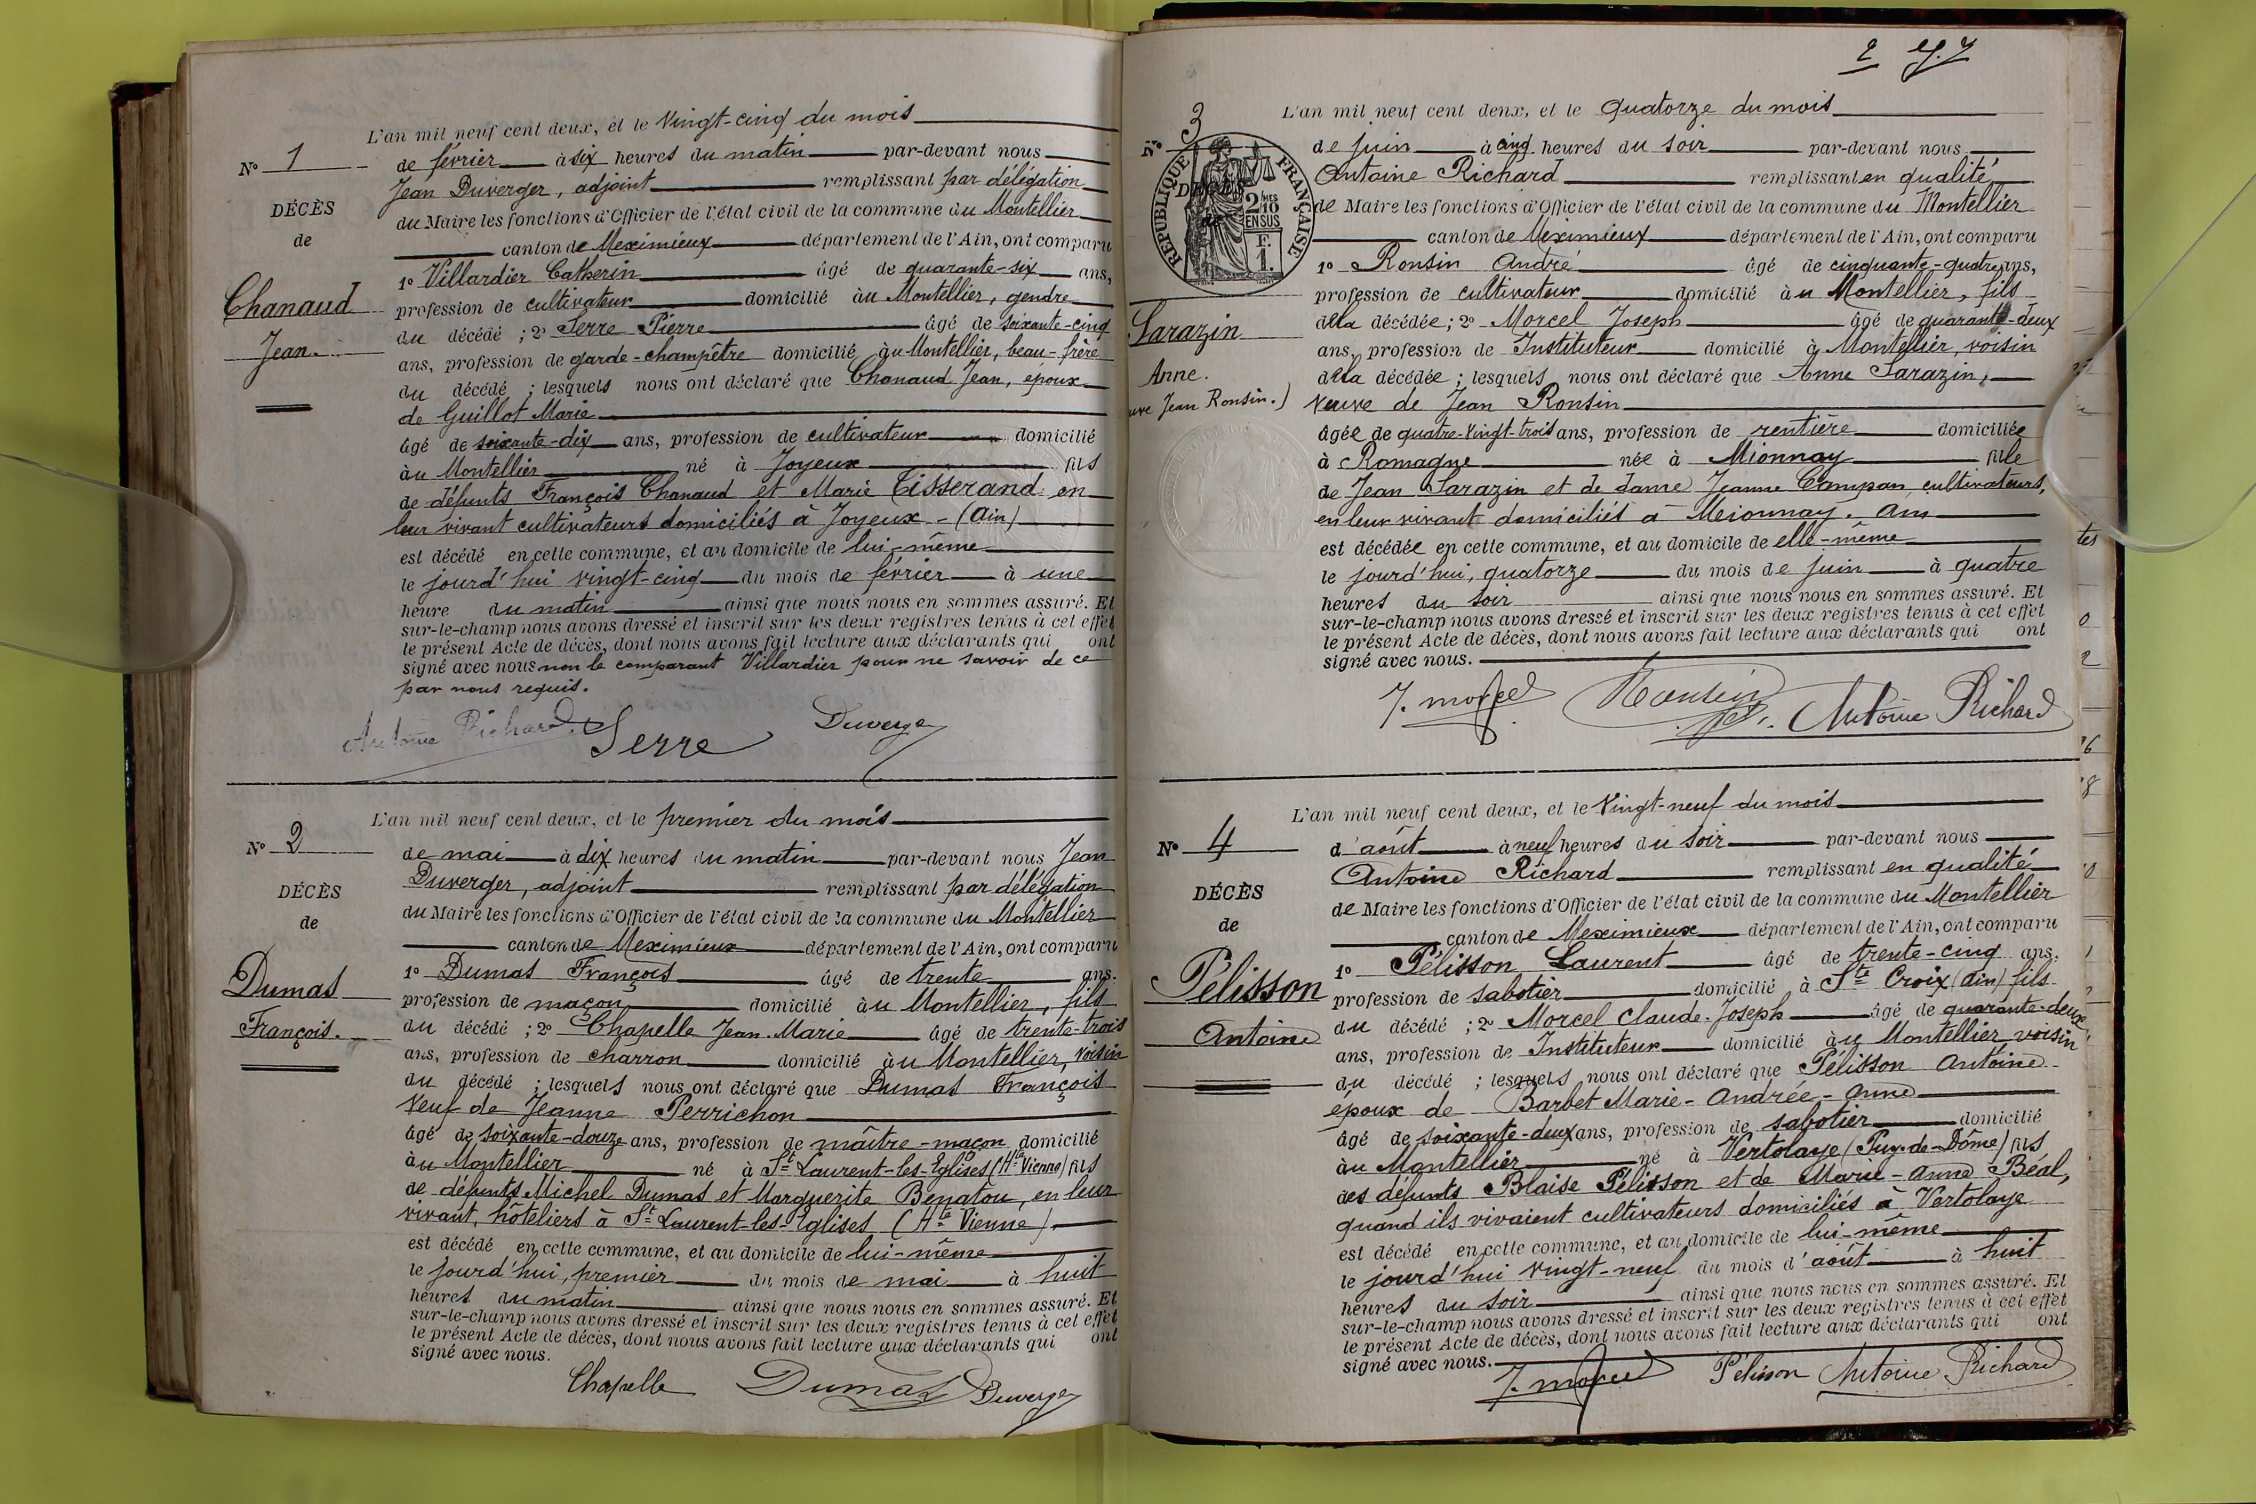 L'an mil neuf cent deux, et le vingt-cinq du mois
N° 1
de février à six heures du matin par-devant nous
Jean Duverger, adjoint remplissant par délégation
DÉCÈS
du Maire les fonctions d'Officier de l'état civil de la commune du Montellier
de
canton de Meximieux département de l'Ain, ont comparu
1° Villardier Catherin âgé de quarante-six ans,
Chanaud
profession de cultivateur domicilié au Montellier, gendre
du décédé ; 2° Serre Pierre âgé de soixante-cinq
Jean.
ans, profession de garde-champêtre domicilié au Montellier, beau-frère
du décédé ; lesquels nous ont déclaré que Chanaud Jean, époux
de Guillot Marie
âgé de soixante-dix ans, profession de cultivateur domicilié
au Montellier né à Joyeux fils
de défunts François Chanaud et Marie Tisserand en
leur vivant cultivateurs domiciliés à Joyeux - (Ain)
est décédé en cette commune, et au domicile de lui-même
le jourd'hui vingt-cinq du mois de février à une
heure du matin ainsi que nous nous en sommes assuré. Et
sur-le-champ nous avons dressé et inscrit sur les deux registres tenus à cet effet
le présent Acte de décès, dont nous avons fait lecture aux déclarants qui ont
signé avec nous non le comparant Villardier pour ne savoir de ce
par nous requis.
Antoine Richard Serre Duverger
L'an mil neuf cent deux, et le premier du mois
N° 2
de mai à dix heures du matin par-devant nous Jean
Duverger, adjoint remplissant par délégation
DÉCÈS
du Maire les fonctions d'Officier de l'état civil de la commune du Montellier
de
canton de Meximieux département de l'Ain, ont comparu
1° Dumas François âgé de trente ans.
Dumas
profession de maçon domicilié au Montellier, fils
François.
du décédé ; 2° Chapelle Jean-Marie âgé de trente-trois
ans, profession de charron domicilié au Montellier, voisin
du décédé ; lesquels nous ont déclaré que Dumas François
veuf de Jeanne Perrichon
âgé de soixante-douze ans, profession de maître-maçon domicilié
au Montellier né à St Laurent-les-Eglises (Hte Vienne) fils
de défunts Michel Dumas et Marguerite Benatou, en leur
vivant, hôteliers à St Laurent-les-Eglises (Hte Vienne)
est décédé en cette commune, et au domicile de lui-même
le jourd'hui, premier du mois de mai à huit
heures du matin ainsi que nous nous en sommes assuré. Et
sur-le-champ nous avons dressé et inscrit sur les deux registres tenus à cet effet
le présent Acte de décès, dont nous avons fait lecture aux déclarants qui ont
signé avec nous.
Chapelle Dumas Duverger
2
L'an mil neuf cent deux, et le quatorze du mois
N° 3
de juin à cinq heures du soir par-devant nous
Antoine Richard remplissant en qualité
RÉPUBLIQUE FRANÇAISE
DÉCÈS
2/10MES EN SUS
F. 1.
de Maire les fonctions d'Officier de l'état civil de la commune du Montellier
canton de Meximieux département de l'Ain, ont comparu
1° Ronsin André âgé de cinquante-quatre ans,
profession de cultivateur domicilié au Montellier, fils
Sarazin
de la décédée ; 2° Morcel Joseph âgé de quarante-deux
ans, profession de Instituteur domicilié à Montellier, voisin
Anne.
de la décédée ; lesquels nous ont déclaré que Anne Sarazin,
uve Jean Ronsin.)
veuve de Jean Ronsin
âgée de quatre-vingt-trois ans, profession de rentière domiciliée
à Romagne née à Mionnay fille
de Jean Sarazin et de dame Jeanne Campan, cultivateurs,
en leur vivant domiciliés à Meionnay. Ain
est décédée en cette commune, et au domicile de elle-même
le jourd'hui, quatorze du mois de juin à quatre
heures du soir ainsi que nous nous en sommes assuré. Et
sur-le-champ nous avons dressé et inscrit sur les deux registres tenus à cet effet
le présent Acte de décès, dont nous avons fait lecture aux déclarants qui ont
signé avec nous.
J. morcel Ronsin Antoine Richard
L'an mil neuf cent deux, et le vingt-neuf du mois
N° 4
d'août à neuf heures du soir par-devant nous
Antoine Richard remplissant en qualité
DÉCÈS
de Maire les fonctions d'Officier de l'état civil de la commune du Montellier
de
canton de Meximieux département de l'Ain, ont comparu
1° Pélisson Laurent âgé de trente-cinq ans.
Pélisson
profession de sabotier domicilié à Ste Croix (Ain) fils
Antoine
du décédé ; 2° Morcel Claude-Joseph âgé de quarante-deux
ans, profession de Instituteur domicilié au Montellier voisin
du décédé ; lesquels nous ont déclaré que Pélisson Antoine
époux de Barbet Marie-Andrée-Anne
âgé de soixante-deux ans, profession de sabotier domicilié
au Montellier né à Vertolaye (Puy-de-Dôme) fils
des défunts Blaise Pélisson et de Marie-Anne Béal,
quand ils vivaient cultivateurs domiciliés à Vertolaye
est décédé en cette commune, et au domicile de lui-même
le jourd'hui vingt-neuf du mois d'août à huit
heures du soir ainsi que nous nous en sommes assuré. Et
sur-le-champ nous avons dressé et inscrit sur les deux registres tenus à cet effet
le présent Acte de décès, dont nous avons fait lecture aux déclarants qui ont
signé avec nous.
J. morcel Pélisson Antoine Richard